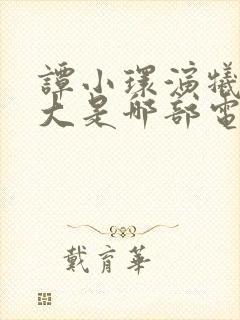 譚小環演犧
大是那部電
戴育華